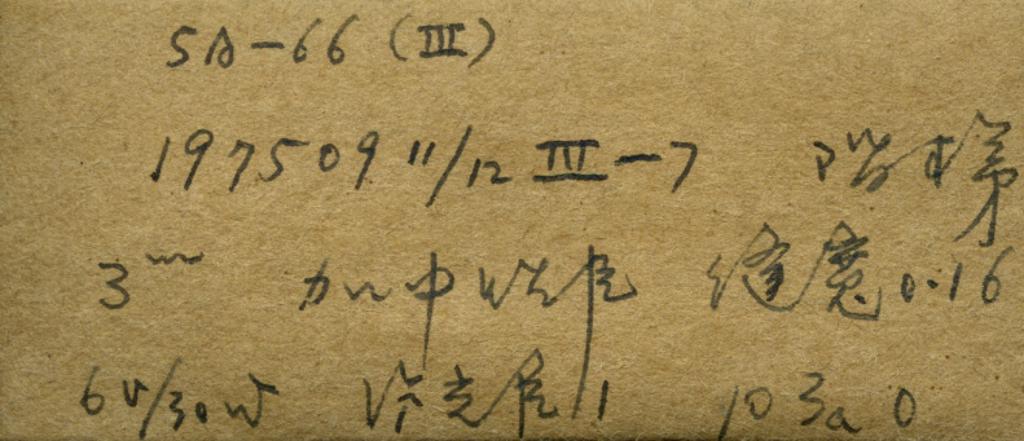 SA-66 (III)
19750911/12 III-7 阶梯
3mm 加中性 缝宽0.16
6V/30W 光 1 10 3a 0